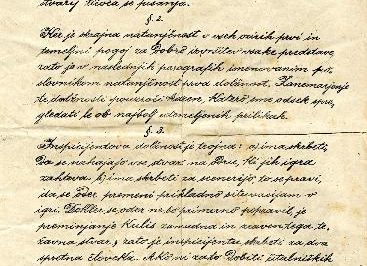 stvarij tičoča se pisanja.
§ 2.
Ker je skrajna natančnost v vseh ozirih prvi in
temeljni pogoj za dobro izvršitev vsake predstave,
zato je v naslednjih paragrafih imenovanim po-
slovnikom natančnost prva dolžnost. Zanemarjenje
te dolžnosti povzroči kazen, katero sme odsek spre-
gledati le ob najbolj utemeljenih prilikah.
§ 3.
Inspicijentova dolžnost je trojna: a) ima skrbeti,
da se nahajajo vse stvari na odru, ki jih igra
zahteva. b) ima skrbeti za scenerijo, to se pravi,
da se oder premeni prikladno situvacijam v
igri. Dokler se oder ne bo primerno popravil, je
preminjanje kulis zamudna in zraven tega te-
žavna stvar, zato je inspicijentu skrbeti za dva
spretna človeka. Ako ni zato dobiti čitalniških